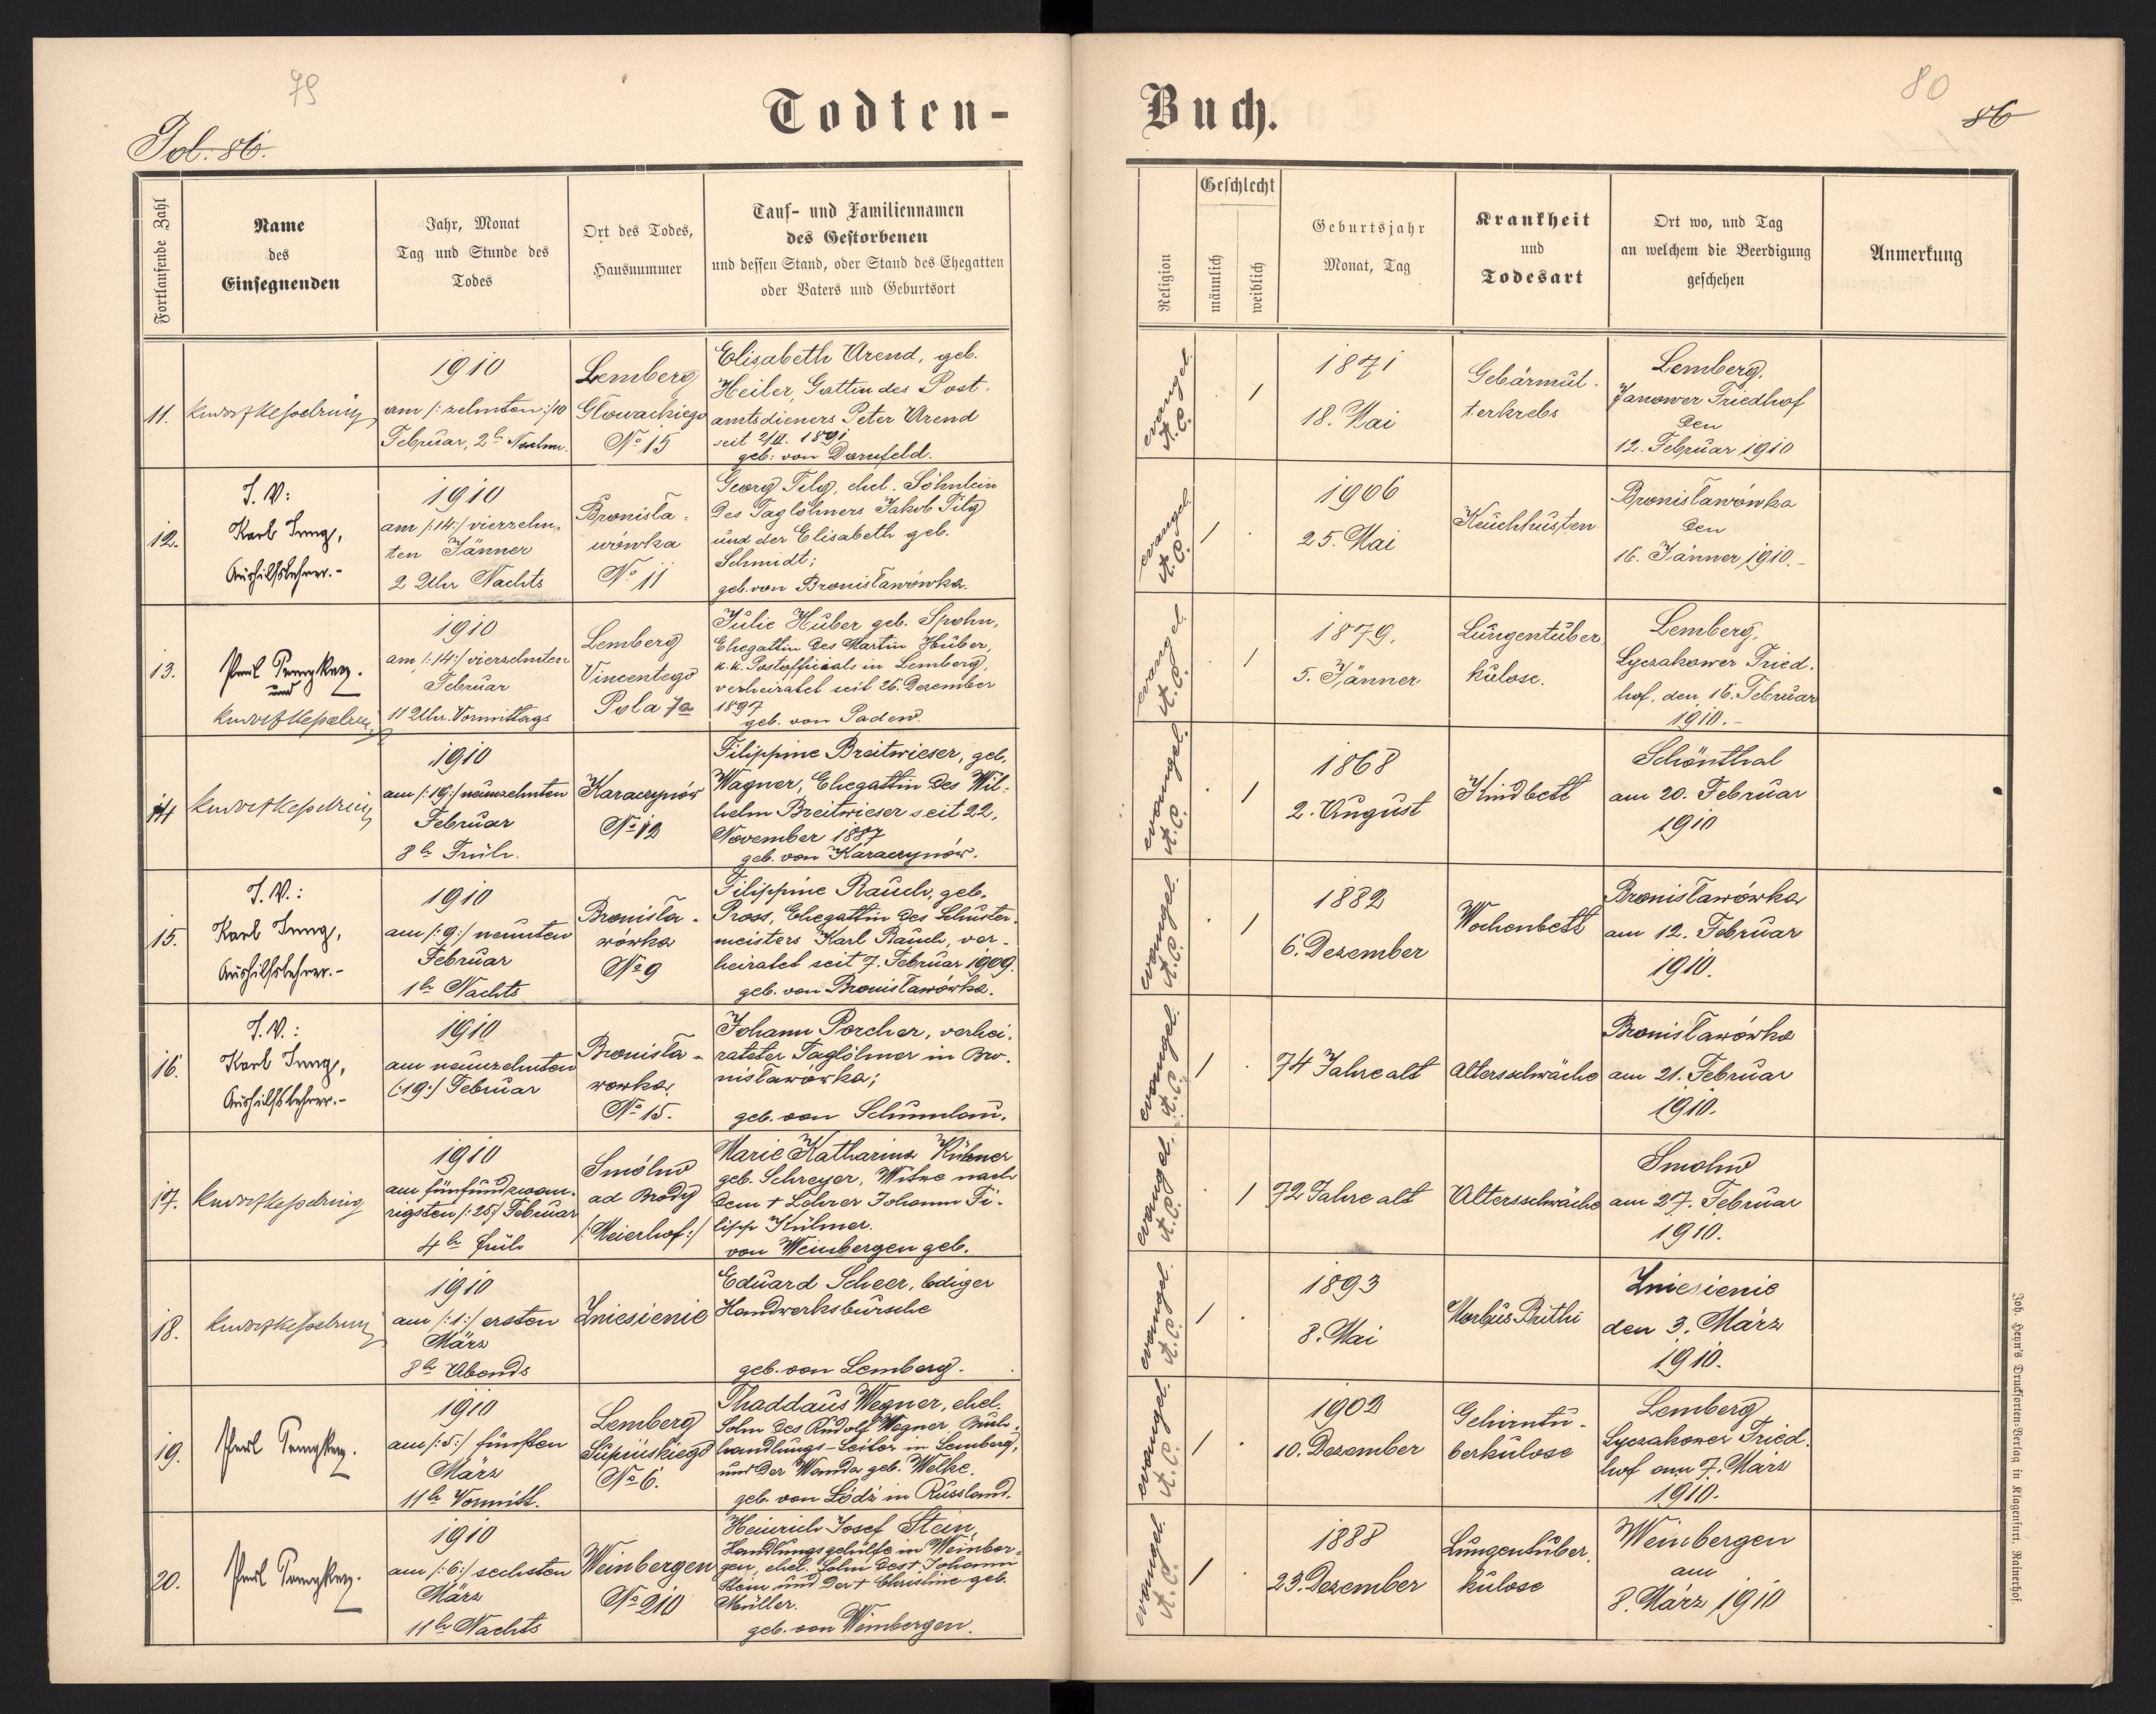 79
Todten-
Fol. 86.
Fortlaufende Zahl
Name
des
Einsegnenden
Jahr, Monat
Tag und Stunde des
Todes
Ort des Todes,
Hausnummer
Tauf- und Familiennamen
des Gestorbenen
und dessen Stand, oder Stand des Ehegatten
oder Vaters und Geburtsort
11.
1910
am /: zehnten :/ 10
Februar, 2h Nachm.
Lemberg
Głowackiego
No 15
Elisabeth Arend, geb.
Heiler, Gattin des Post-
amtsdieners Peter Arend
seit 2/II. 1891
geb: von Dornfeld.
12.
I. V:
Karl Jung,
Aushilfslehrer.-
1910
am /:14:/ vierzehn-
ten Jänner
2 Uhr Nachts
Bronisła-
wówka
No 11
Georg Filg, ehel. Söhnlein
des Taglöhners Jakob Filg
und der Elisabeth geb.
Schmidt;
geb. von Bronisławówka.
13.
und
1910
am /:14:/ vierzehnten
Februar
11 Uhr Vormittags
Lemberg
Vincentego
Pola 7a
Julie Huber geb. Spohn,
Ehegattin des Martin Huber,
k.k. Postofficials in Lemberg,
verheiratet seit 26. Dezember
1897
geb. von Padew.
14
1910
am /:19:/ neunzehnten
Februar
8h Früh.
Karaczynów
No 12
Filippine Breitwieser, geb.
Wagner, Ehegattin des Wil-
helm Breitwieser seit 22.
November 1887
geb. von Karaczynów.
15.
I. V.:
Karl Jung,
Aushilfslehrer.-
1910
am /:9:/ neunten
Februar
1h Nachts
Bronisła-
wówka
No 9
Filippine Rauch, geb.
Pross, Ehegattin des Schuster-
meisters Karl Rauch, ver-
heiratet seit 7. Februar 1909.
geb. von Bronisławówka.
16.
I. V.:
Karl Jung,
Aushilfslehrer.-
1910
am neunzehnten
(:19:) Februar
Bronisła-
wowka,
No 15.
Johann Porcher, verhei-
rateter Taglöhner in Bro-
nisławówka;
geb. von
17.
1910
am fünfundzwan-
zigsten /:25:/ Februar
4h früh
Smólno
ad Brody
/:Meierhof:/
Marie Katharina Kühner
geb. Schreyer, Witwe nach
dem † Lehrer Johann Fi-
lipp Kühner.
von Weinbergen geb.
18.
1910
am /:1:/ ersten
März
8h Abends
Zniesienie
Eduard Scheer, lediger
Handwerksbursche
geb. von Lemberg.
19.
1910
am /:5:/ fünften
März
11h Vormitt.
Lemberg
Supińskiego
No 6.
Thaddäus Wegner, ehel.
Sohn des Rudolf Wegner, Buch-
handlungs-Leiter in Lemberg,
und der Wanda geb. Welke.
geb. von Lódź in Russland.
20.
1910
am /:6:/ sechsten
März
11h Nachts
Weinbergen
No 210
Heinrich Josef Stein,
Handlungsgehülfe in Weinber-
gen, ehel. Sohn des † Johann
Stein und der † Christine geb.
Müller.
geb. von Weinbergen.
80
Buch.
86
Religion
Geschlecht
männlich
weiblich
Geburtsjahr
Monat, Tag
Krankheit
und
Todesart
Ort wo, und Tag
an welchem die Beerdigung
geschehen
Anmerkung
evangel.
A. C.
1
1871
18. Mai
Gebärmut-
terkrebs
Lemberg.
Janower Friedhof
den
12. Februar 1910
evangel.
A. C.
1
1906
25. Mai
Keuchhusten
Bronisławówka
den
16. Jänner 1910.-
evangel.
A. C.
1
1879.
5. Jänner
Lungentuber-
kulose.
Lemberg,
Lyczakower Fried-
hof, den 16. Februar
1910.-
evangel.
A. C.
1
1868
2. August
Kindbett
Schönthal
am 20. Februar
1910
evangel.
A. C.
1
1882
6. Dezember
Wochenbett
Bronisławówka
am 12. Februar
1910.
evangel.
A. C.
1
74 Jahre alt
Altersschwäche
Bronisławówka
am 21. Februar
1910.
evangel.
A. C.
1
72 Jahre alt
Altersschwäche
Smolno
am 27. Februar
1910.
evangel.
A. C.
1
1893
8. Mai
Morbus Brithi
Zniesienie
den 3. März
1910.
evangel.
A. C.
1
1902
10. Dezember
Gehirntu-
berkulose
Lemberg
Lyczakower Fried-
hof am 7. März
1910.
evangel.
A. C.
1
1888
23. Dezember
Lungentuber-
kulose
Weinbergen
am
8. März 1910
Joh. Heyn's Drucksorten-Verlag in Klagenfurt, Rainerhof.